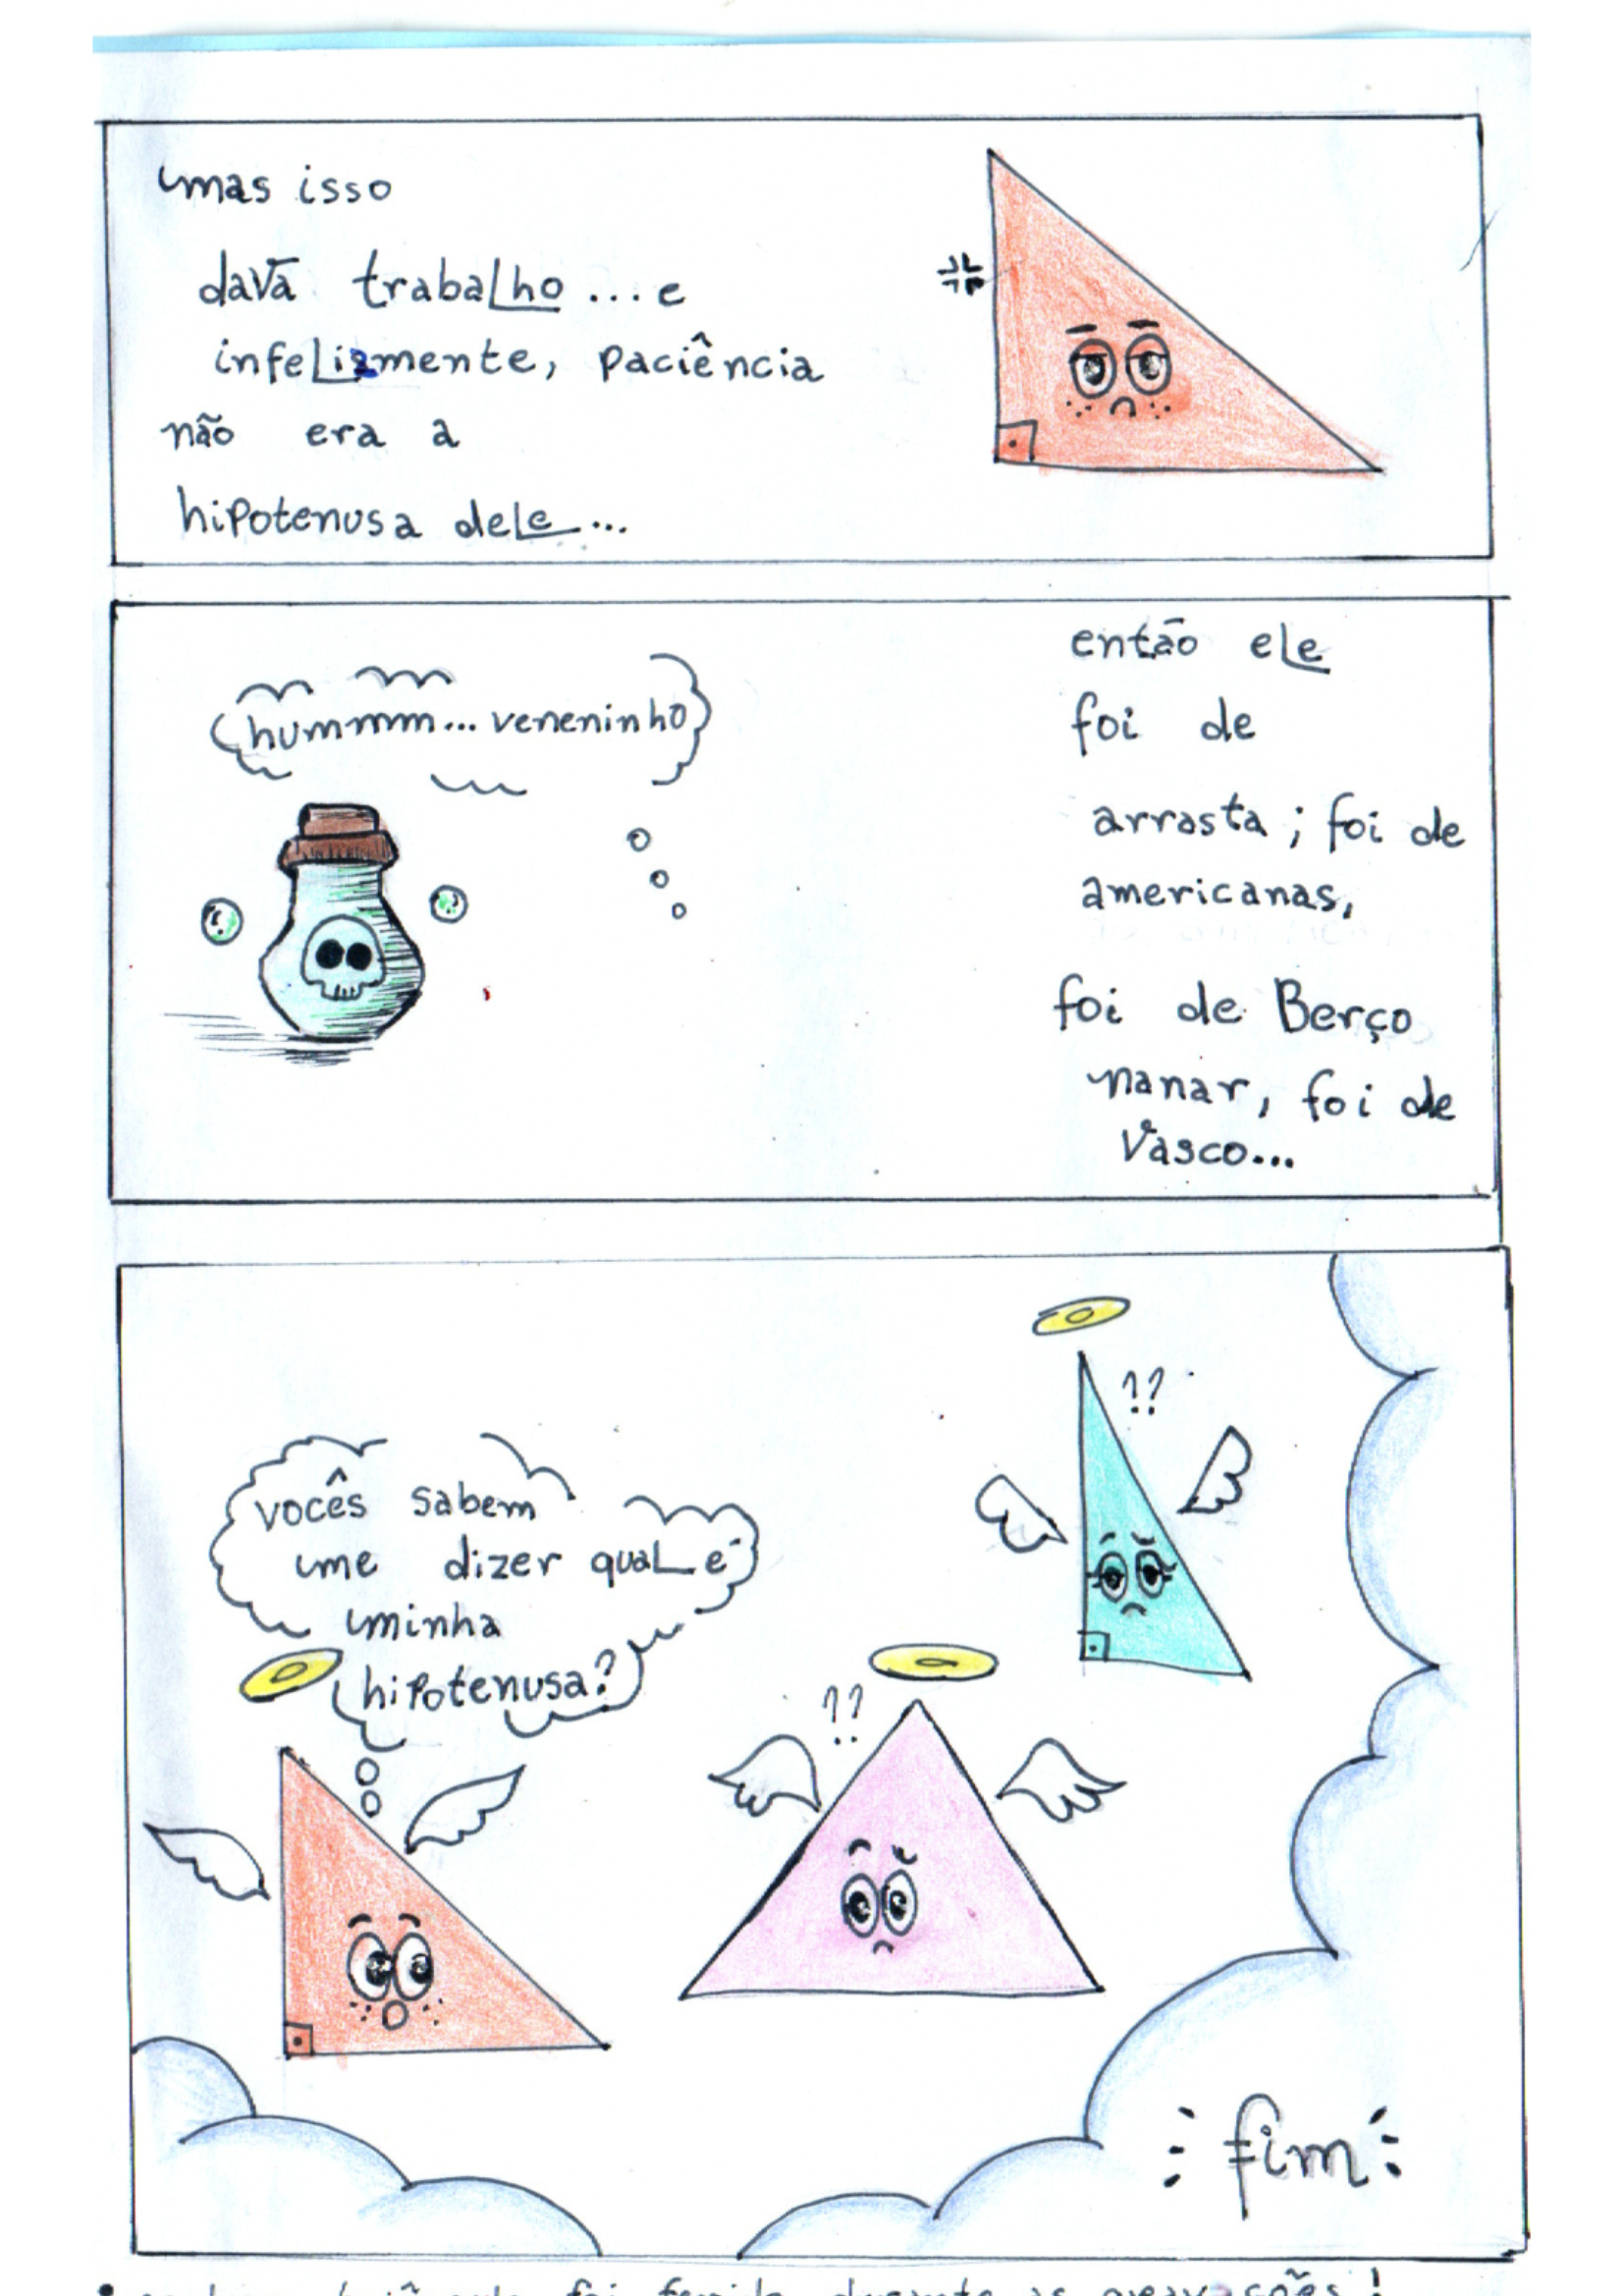 mas isso
dava trabalho ... e
infelizmente, paciência
não era a
hipotenusa dele...
hummm... veneninho
então ele
foi de
arrasta ; foi de
americanas,
foi de Berço
nanar, foi de
Vasco...
??
vocês sabem
me dizer qual é
minha
hipotenusa?
??
fim
foi ferido durante as gravações!